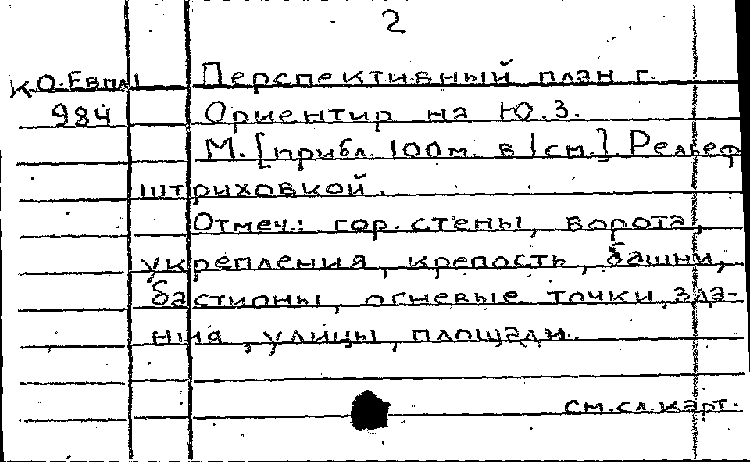 2
К О.Евпл Перспективный план г.
984 Ориентир на Ю.З.
М. [прибл. 100м. в 1см.] Рельеф
штриховкой.
Отмеч.: гор. стены, ворота,
укрепления, крепость, башни,
бастионы, огневые точки, зда-
ния, улицы, площади.
см. сл. карт.